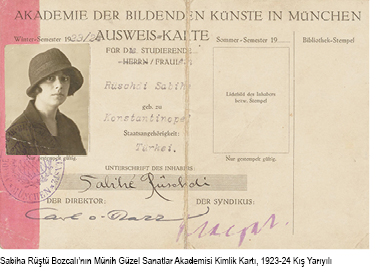 AKADEMIE DER BILDENDEN KÜNSTE IN MÜNCHEN
AUSWEIS-KARTE
Winter-Semester 1923/24
Sommer-Semester 19
Bibliothek-Stempel
FÜR DIE STUDIERENDE
HERRN / FRAULEIN
Ruschdi Sabihe
geb. zu
Konstantinopel
Staatsangehörigkeit:
Türkei.
Lichtbild des Inhabers
bezw. Stempel
Nur gestempelt gültig.
Nur gestempelt gültig.
UNTERSCHRIFT DES INHABERS
Sabihé Rüschdi
DER DIREKTOR:
DER SYNDIKUS:
Sabiha Rüştü Bozcalı'nın Münih Güzel Sanatlar Akademisi Kimlik Kartı, 1923-24 Kış Yarıyılı